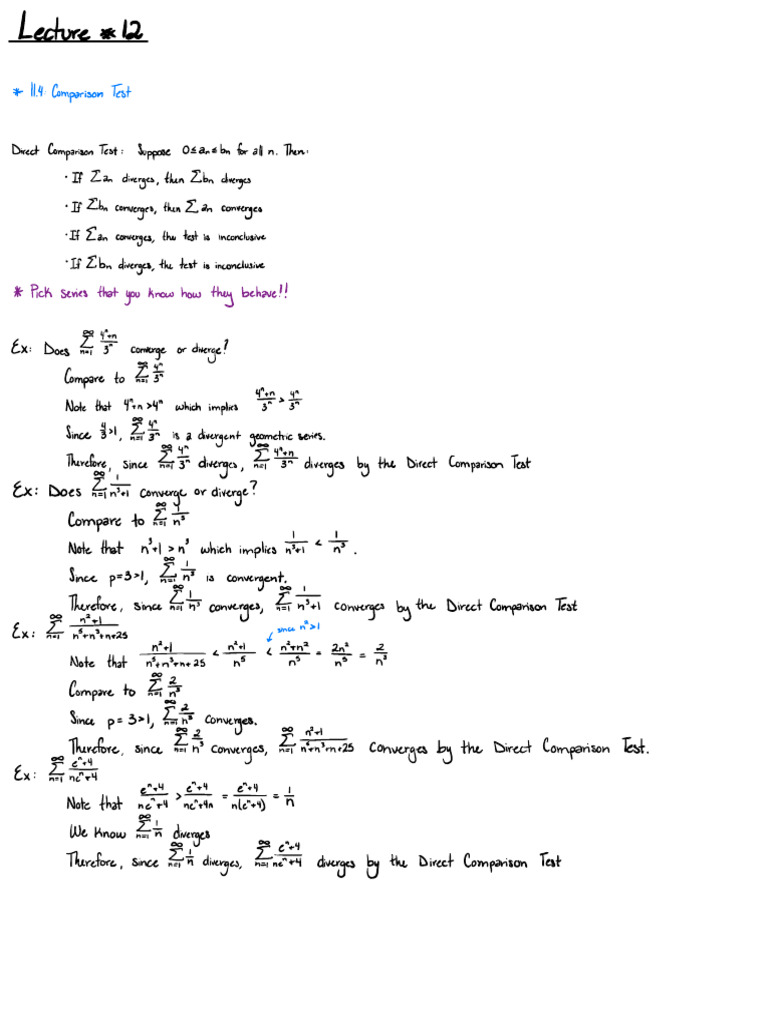 Lecture #12
* 11.4: Comparison Test
Direct Comparison Test: Suppose 0≤aₙ≤bₙ for all n. Then:
· If Σaₙ diverges, then Σbₙ diverges
· If Σbₙ converges, then Σaₙ converges
· If Σaₙ converges, the test is inconclusive
· If Σbₙ diverges, the test is inconclusive
* Pick series that you know how they behave!!
Ex: Does ∑_{n=1}^{∞} (4ⁿ+n)/3ⁿ converge or diverge?
Compare to ∑_{n=1}^{∞} 4ⁿ/3ⁿ
Note that 4ⁿ+n>4ⁿ which implies (4ⁿ+n)/3ⁿ > 4ⁿ/3ⁿ
Since 4/3>1, ∑_{n=1}^{∞} 4ⁿ/3ⁿ is a divergent geometric series.
Therefore, since ∑_{n=1}^{∞} 4ⁿ/3ⁿ diverges, ∑_{n=1}^{∞} (4ⁿ+n)/3ⁿ diverges by the Direct Comparison Test
Ex: Does ∑_{n=1}^{∞} 1/(n³+1) converge or diverge?
Compare to ∑_{n=1}^{∞} 1/n³
Note that n³+1 > n³ which implies 1/(n³+1) < 1/n³.
Since p=3>1, ∑_{n=1}^{∞} 1/n³ is convergent.
Therefore, since ∑_{n=1}^{∞} 1/n³ converges, ∑_{n=1}^{∞} 1/(n³+1) converges by the Direct Comparison Test
Ex: ∑_{n=1}^{∞} (n²+1)/(n⁵+n³+n+25)
since n²>1
Note that (n²+1)/(n⁵+n³+n+25) < (n²+1)/n⁵ < (n²+n²)/n⁵ = 2n²/n⁵ = 2/n³
Compare to ∑_{n=1}^{∞} 2/n³
Since p=3>1, ∑_{n=1}^{∞} 2/n³ converges.
Therefore, since ∑_{n=1}^{∞} 2/n³ converges, ∑_{n=1}^{∞} (n²+1)/(n⁵+n³+n+25) converges by the Direct Comparison Test.
Ex: ∑_{n=1}^{∞} (eⁿ+4)/(neⁿ+4)
Note that (eⁿ+4)/(neⁿ+4) > (eⁿ+4)/(neⁿ+4n) = (eⁿ+4)/(n(eⁿ+4)) = 1/n
We know ∑_{n=1}^{∞} 1/n diverges
Therefore, since ∑_{n=1}^{∞} 1/n diverges, ∑_{n=1}^{∞} (eⁿ+4)/(neⁿ+4) diverges by the Direct Comparison Test